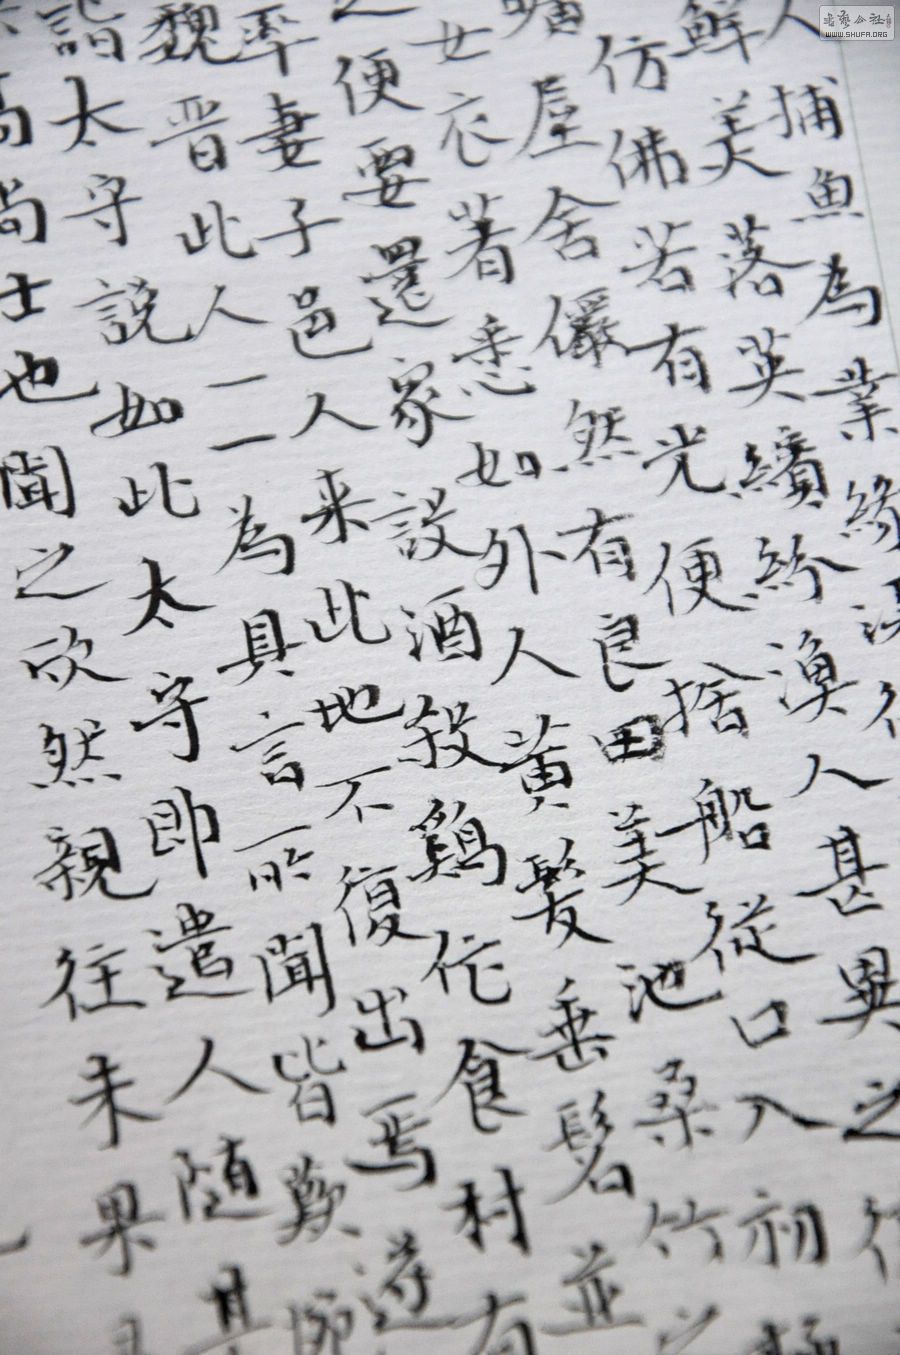 人捕魚為業緣溪行
鮮美落英繽紛漁人甚異之
仿佛若有光便捨船從口入初極
曠屋舍儼然有良田美池桑竹之
女衣著悉如外人黃髮垂髫並
便要還家設酒殺鷄作食村有
率妻子邑人来此地不復出焉遂
魏晋此人一一為具言所聞皆歎
詣太守説如此太守即遣人随其
高尚士也聞之欣然親往未果
書藝公社
WWW.SHUFA.ORG